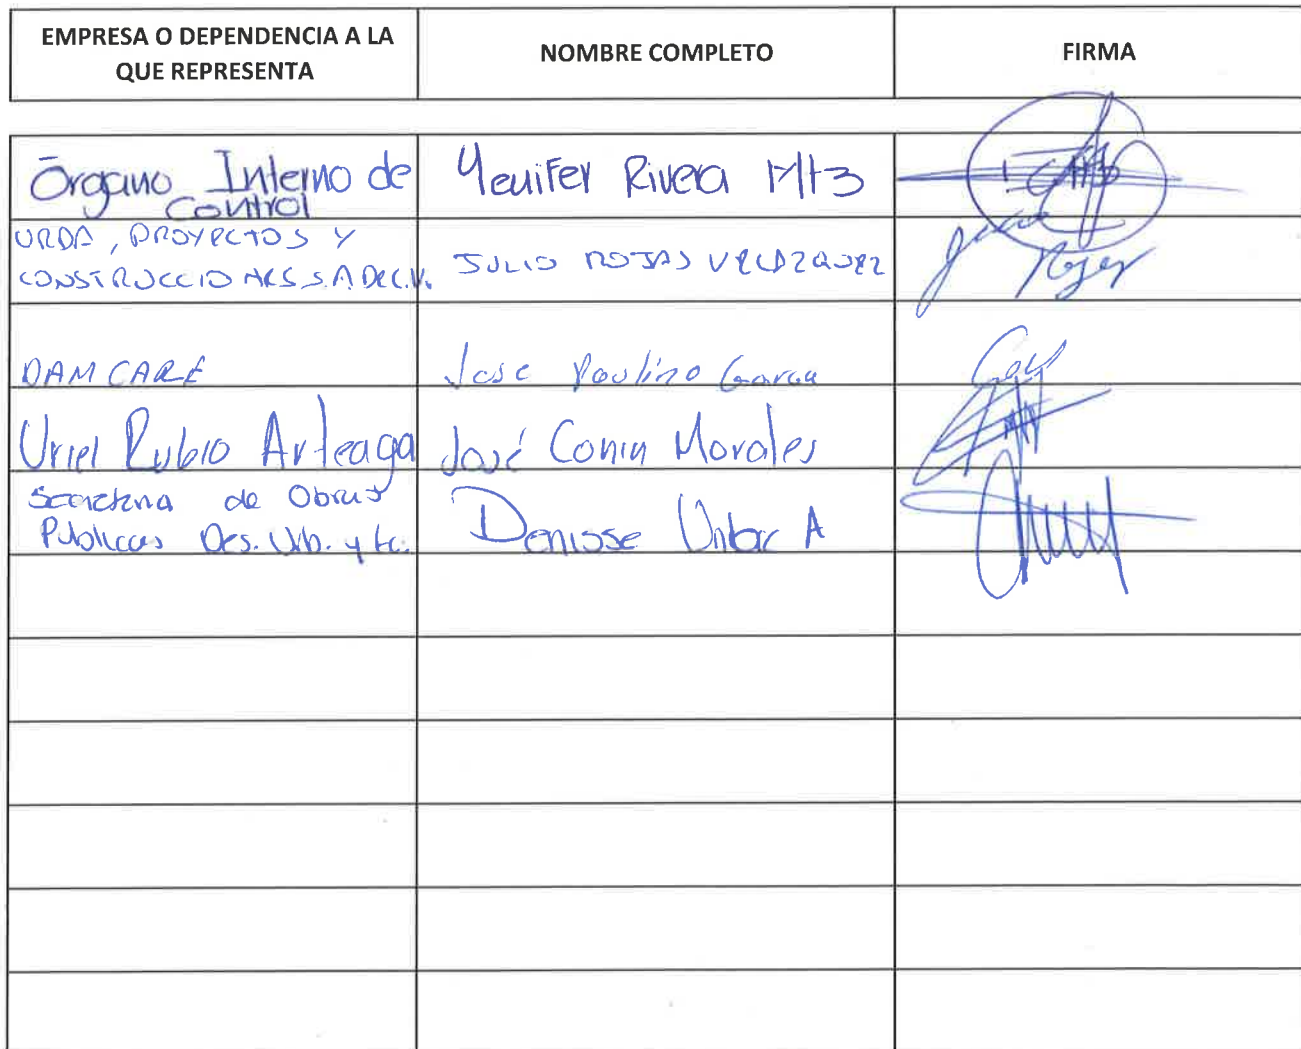 EMPRESA O DEPENDENCIA A LA
QUE REPRESENTA
NOMBRE COMPLETO
FIRMA
Órgano Interno de
Control
Yenifer Rivera Mtz
URDA, PROYECTOS Y
CONSTRUCCIONES S.A DE C.V.
JULIO ROJAS VELAZQUEZ
DAM CARE
Jose Paulino Garcia
Uriel Rubio Arteaga
José Conin Morales
Secretaria de Obras
Publicas Des. Urb. y Ec.
Denisse Uribe A